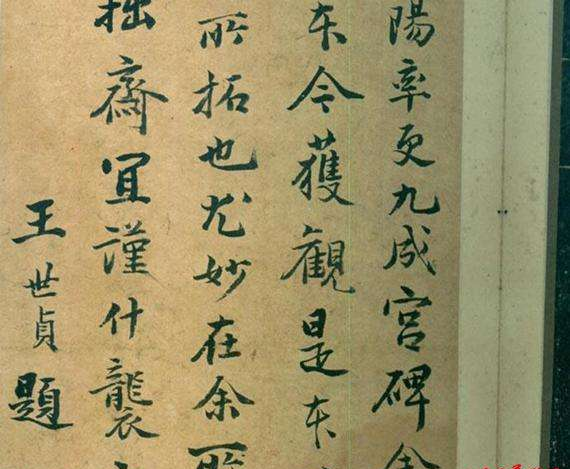 陽率更九成宫碑余
本今獲觀是本
所拓也尤妙在余所
拙齋宜謹什襲
王世貞題